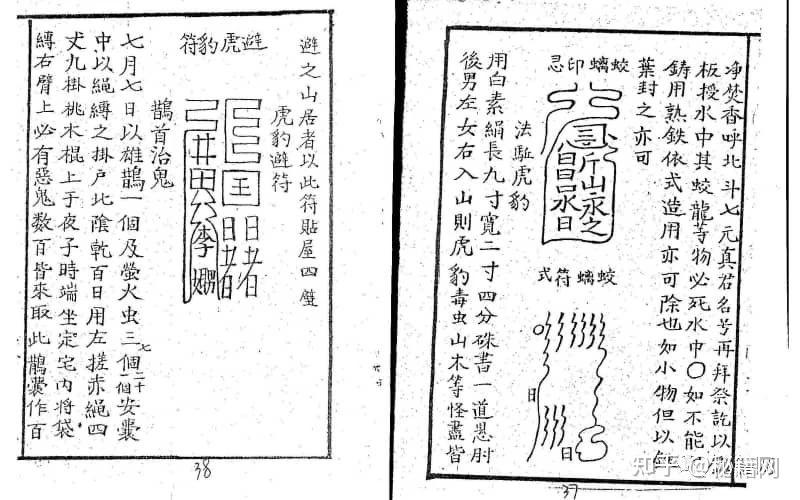 净焚香呼北斗七元真君名号再拜祭訖以
板授水中其蛟龍等物必死水中〇如不能
鑄用熟鉄依式造用亦可除也如小物但以
葉封之亦可
蛟螭印忌
斤山水之
昌呂水日
蛟螭符式
日
日
法駈虎豹
用白素絹長九寸寬二寸四分硃書一道懸肘
後男左女右入山則虎豹毒虫山木等怪盡皆
37
避之山居者以此符貼屋四壁
虎豹避符
避虎豹符
王
鵲首治鬼
七月七日以雄鵲一個及螢火虫三七個二十一個安囊
中以绳縛之掛戶北陰乾百日用左搓赤绳四
丈九掛桃木棍上于夜子時端坐定宅内將袋
縛右臂上必有惡鬼数百皆來取此鵲囊作百
38
知乎 @秘籍网